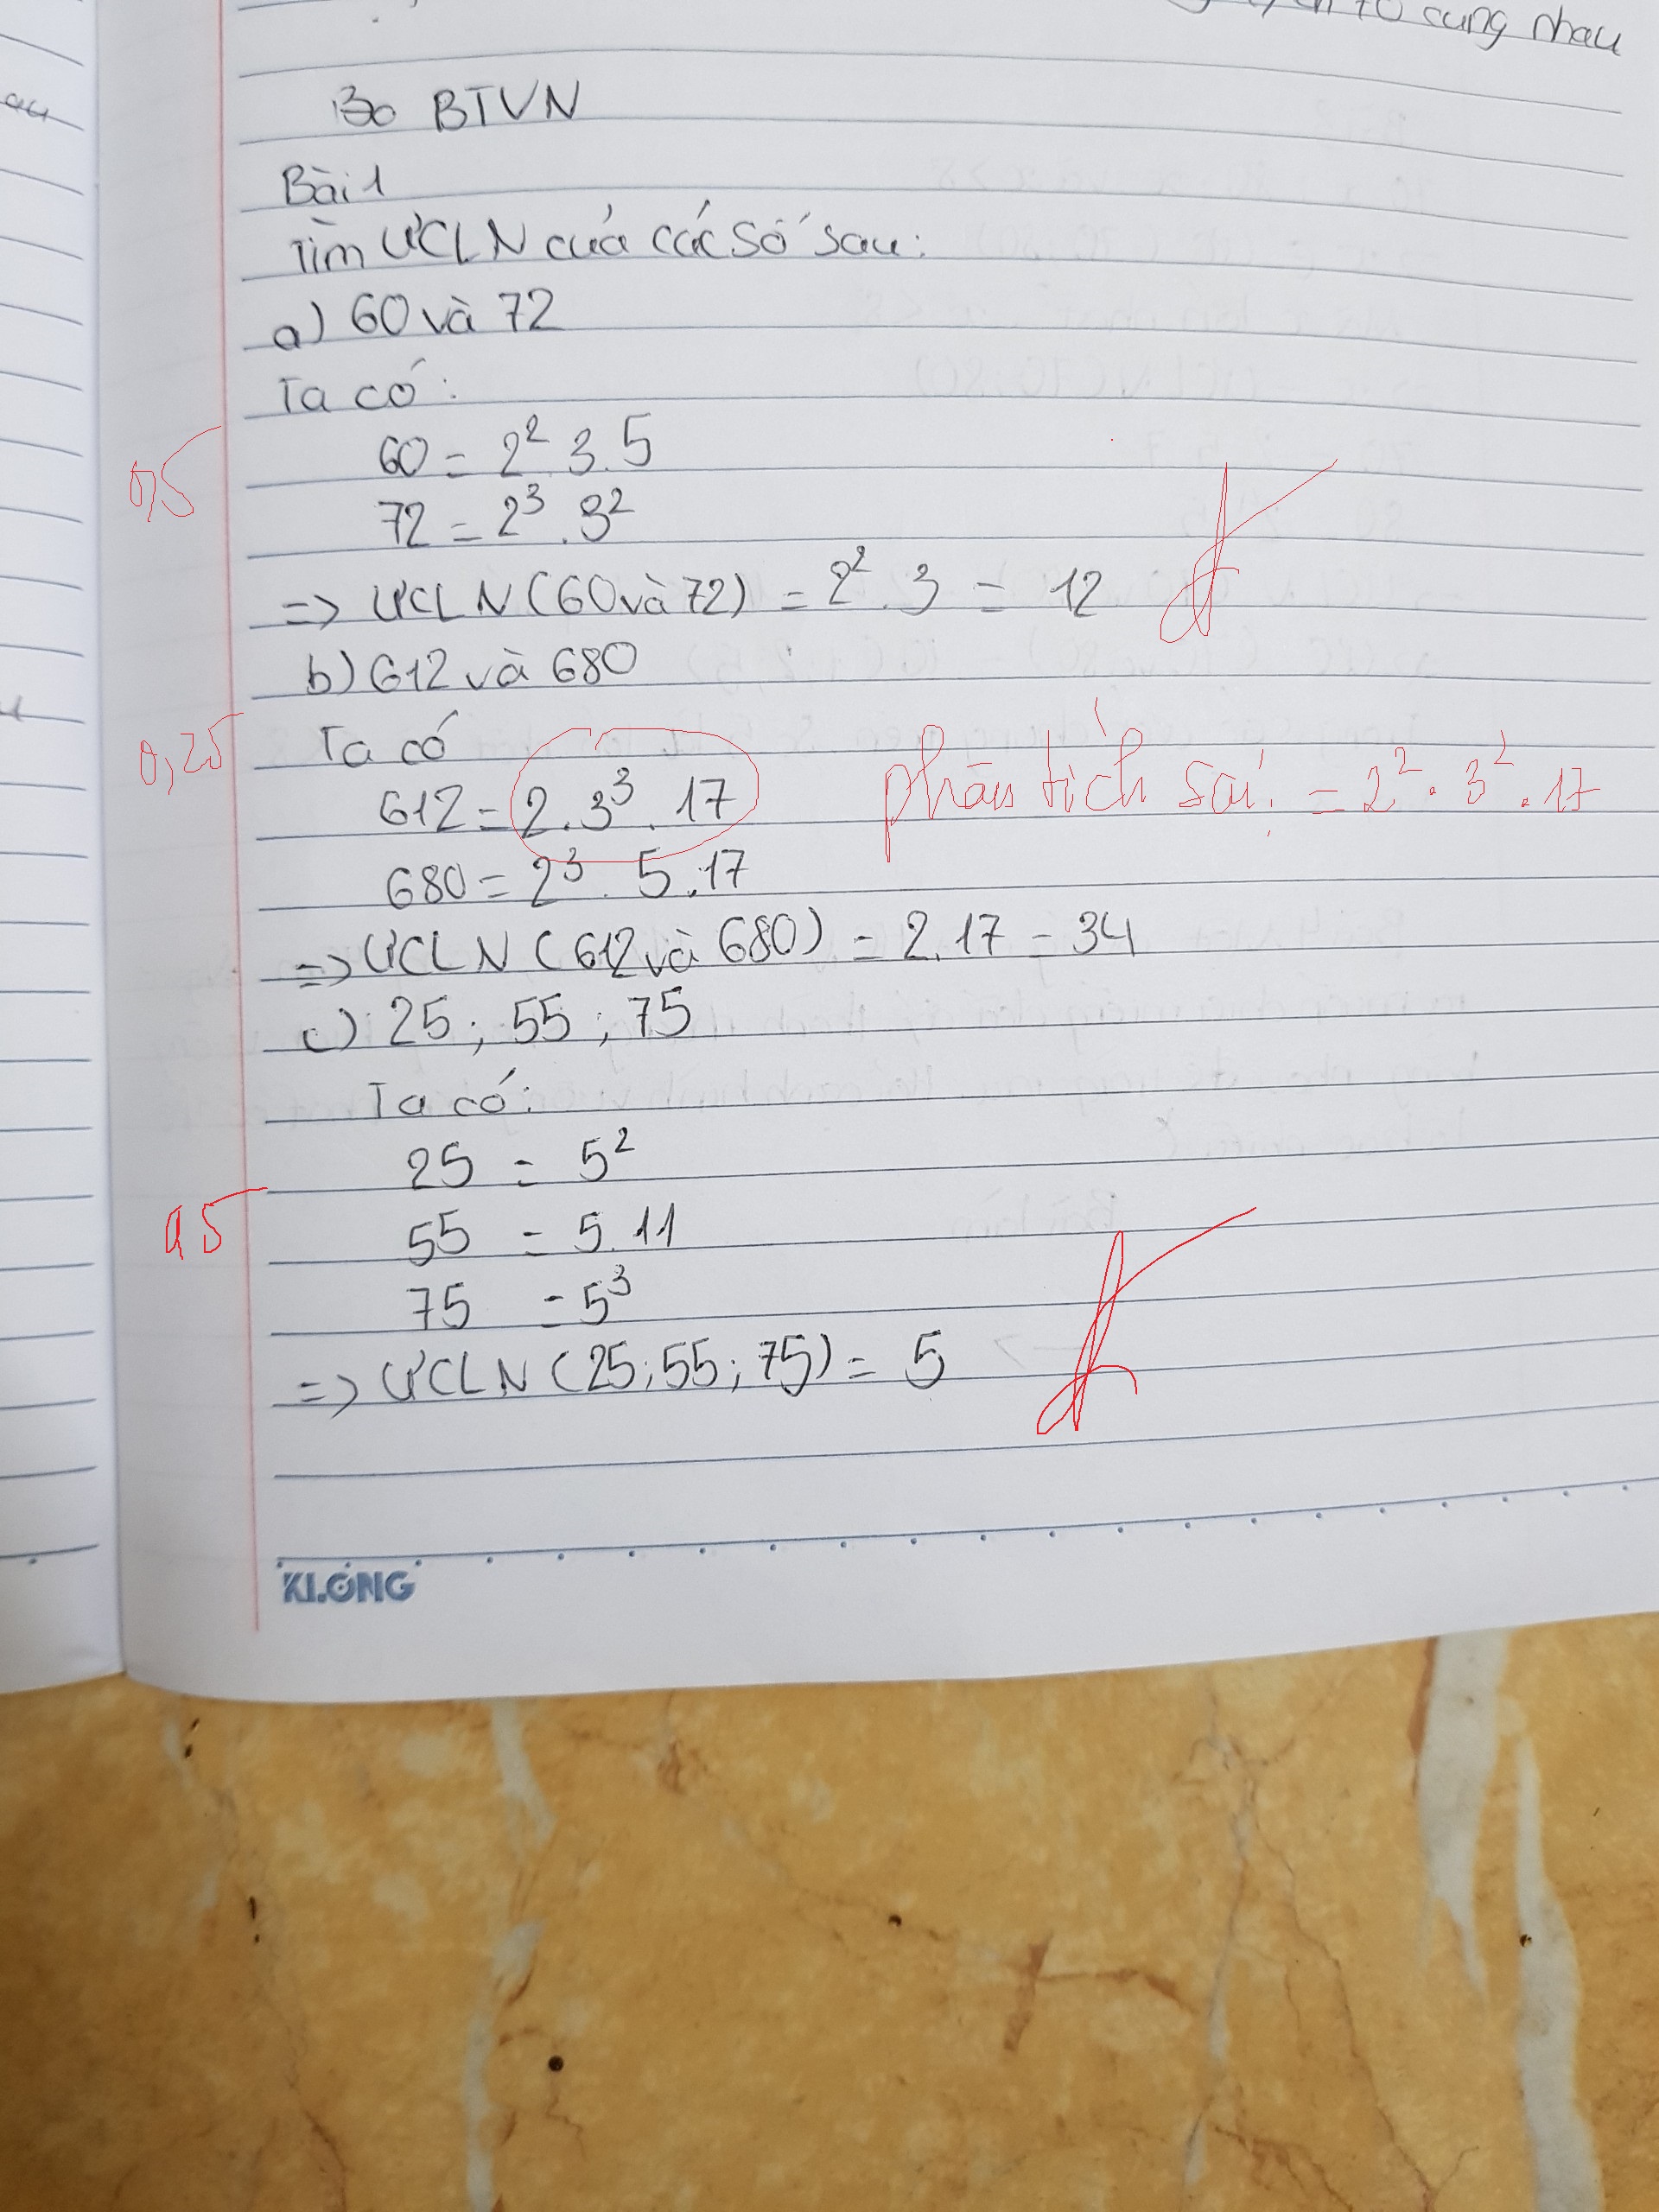 cùng nhau
BTVN
Bài 1
Tìm ƯCLN của các số sau:
a) 60 và 72
Ta có:
0,5
60 = 2² . 3 . 5
72 = 2³ . 3²
=> ƯCLN (60 và 72) = 2² . 3 = 12
b) 612 và 680
0,25
Ta có
612 = 2 . 3³ . 17 phân tích sai! = 2² . 3² . 17
680 = 2³ . 5 . 17
=> ƯCLN (612 và 680) = 2 . 17 = 34
c) 25 ; 55 ; 75
Ta có:
25 = 5²
0,5
55 = 5 . 11
75 = 5³
=> ƯCLN (25 ; 55 ; 75) = 5
KLONG